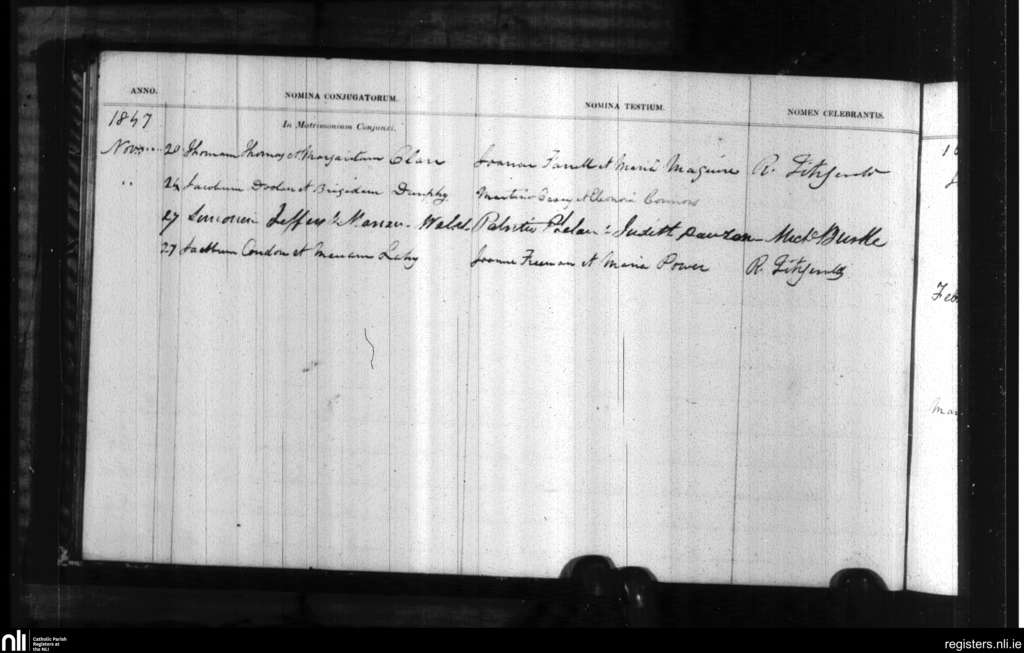 ANNO. NOMINA CONJUGATORUM. NOMINA TESTIUM. NOMEN CELEBRANTIS.
1847 In Matrimonium Conjunxi.
Novr 20 Thomam Thomas et Margaritam Clare Joanne Farrell et Maria Maguire R. Fitzgerald
" 24 Jacobum Doolan et Brigidam Dunphy Martino Casey et Eleonora Connors
27 Simonem Jeffers & Mariam Walsh Patritio Phelan & Judith Michl Burke
27 Jacobum Condon et Mariam Leahy Joanne Freeman et Maria Power R. Fitzgerald
Feb
Mar
nli Catholic Parish
Registers at
the NLI
registers.nli.ie